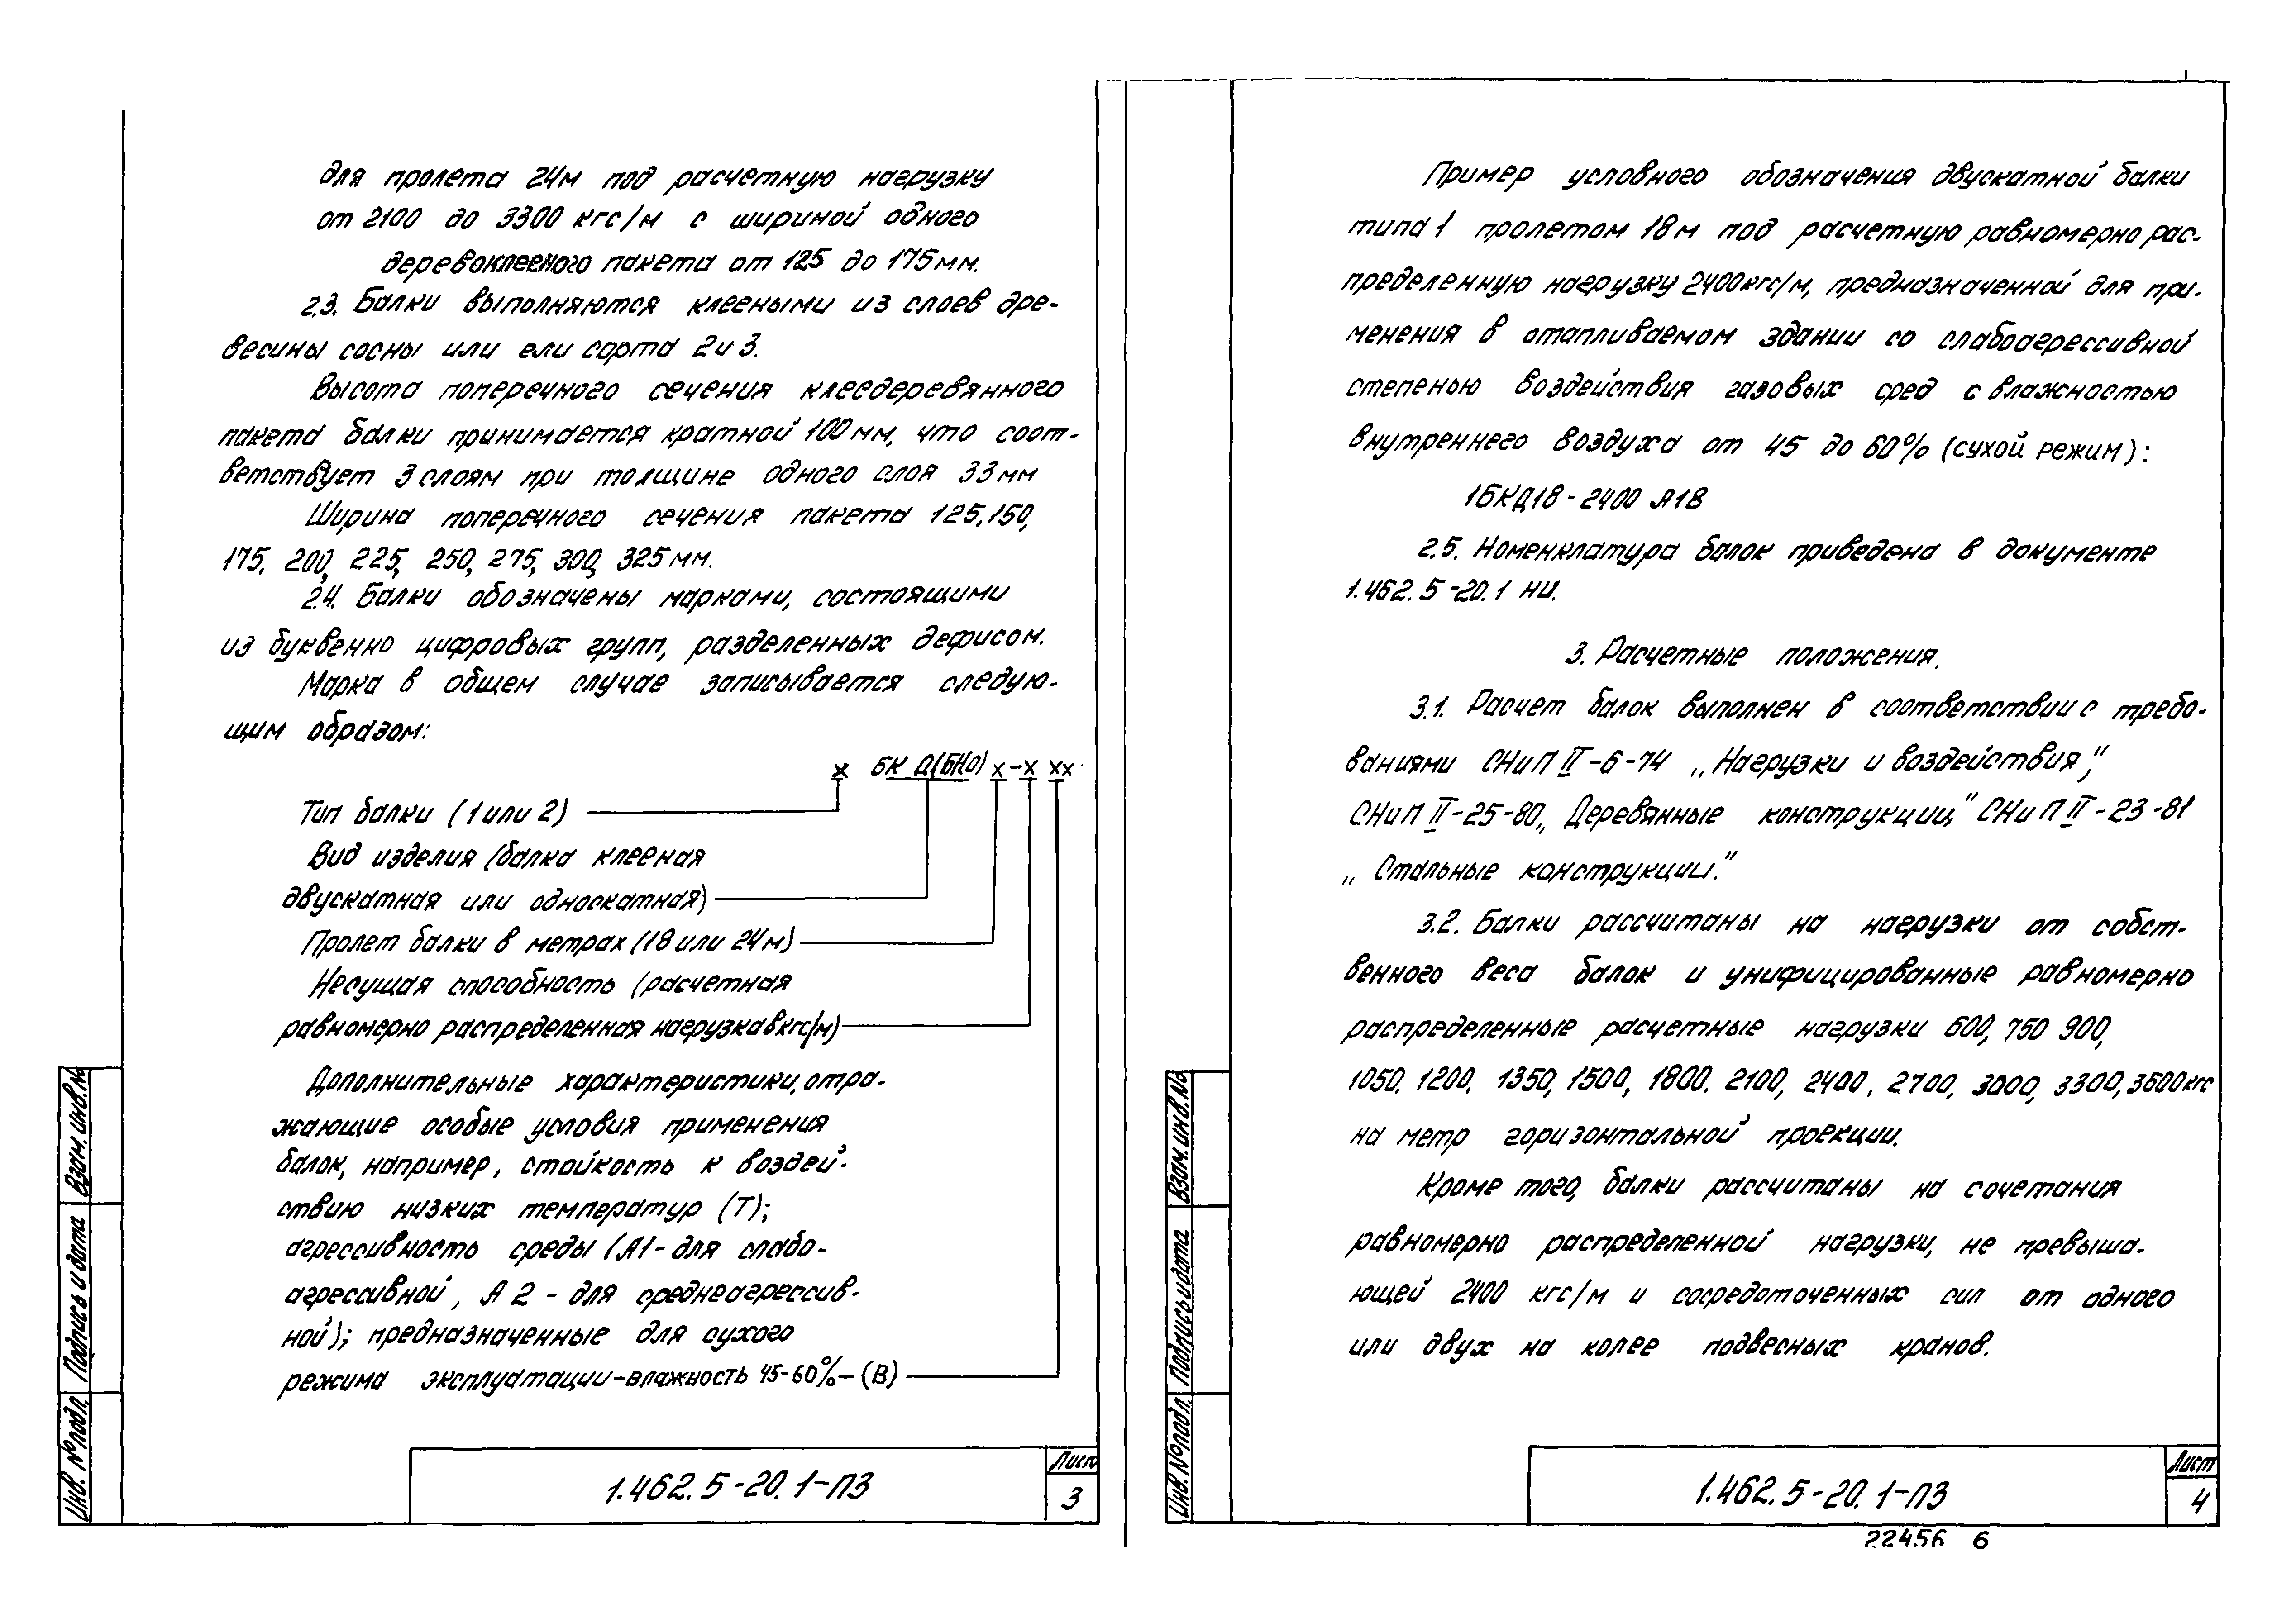 для пролета 24м под расчетную нагрузку
от 2100 до 3300 кгс/м с шириной одного
деревоклееного пакета от 125 до 175мм.
2.3. Балки выполняются клееными из слоев дре-
весины сосны или ели сорта 2 и 3.
Высота поперечного сечения клеедеревянного
пакета балки принимается кратной 100 мм, что соот-
ветствует 3 слоям при толщине одного слоя 33 мм
Ширина поперечного сечения пакета 125, 150,
175, 200, 225, 250, 275, 300, 325 мм.
2.4. Балки обозначены марками, состоящими
из буквенно цифровых групп, разделенных дефисом.
Марка в общем случае записывается следую-
щим образом:
х БК Д(БНО) х-х хх
Тип балки (1 или 2)
Вид изделия (балка клееная
двускатная или односкатная)
Пролет балки в метрах (18 или 24 м)
Несущая способность (расчетная
равномерно распределенная нагрузка в кгс/м)
Дополнительные характеристики, отра-
жающие особые условия применения
балок, например, стойкость к воздей-
ствию низких температур (Т);
агрессивность среды (А1-для слабо-
агрессивной, А2 - для среднеагрессив-
ной); предназначенные для сухого
режима эксплуатации-влажность 45-60%-(В)
Инв. № подл. Подпись и дата Взам. инв. №
1.462.5-20.1-ПЗ
Лист
3
Пример условного обозначения двускатной балки
типа 1 пролетом 18 м под расчетную равномерно рас-
пределенную нагрузку 2400кгс/м, предназначенной для при-
менения в отапливаемом здании со слабоагрессивной
степенью воздействия газовых сред с влажностью
внутреннего воздуха от 45 до 60% (сухой режим):
1БКД18-2400 А1В
2.5. Номенклатура балок приведена в документе
1.462.5-20.1 НИ.
3. Расчетные положения.
3.1. Расчет балок выполнен в соответствии с требо-
ваниями СНиП II-6-74 „Нагрузки и воздействия",
СНиП II-25-80 „Деревянные конструкции," СНиП II-23-81
„Стальные конструкции."
3.2. Балки рассчитаны на нагрузки от собст-
венного веса балок и унифицированные равномерно
распределенные расчетные нагрузки 600, 750 900,
1050. 1200, 1350, 1500, 1800. 2100, 2400, 2700, 3000, 3300, 3600кгс
на метр горизонтальной проекции.
Кроме того, балки рассчитаны на сочетания
равномерно распределенной нагрузки, не превыша-
ющей 2400 кгс/м и сосредоточенных сил от одного
или двух на колее подвесных кранов.
Инв. № подл. Подпись и дата Взам. инв. №
1.462.5-20.1-ПЗ
Лист
4
22456 6